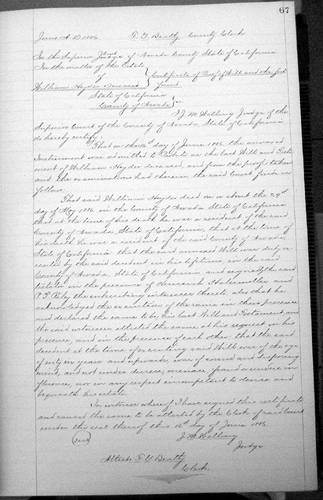 67
June A.D. 1886 F. G. Beatty County Clerk
In the Superior Court of Nevada County State of California
In the matter of the Estate
of
William Hayden Deceased
Certificate of Proof of Will and
found
State of California
County of Nevada } ss.
I J. M. Walling Judge of the
Superior Court of the County of Nevada, State of California
do hereby certify
That on the day of June 1886, the annexed
Instrument was admitted to Probate as the last Will and Testa
ment of William Hayden deceased and from the proofs taken
and the examinations had therein the said Court finds as
follows
That said William Hayden died on or about the 29th
day of May 1886 in the County of Nevada State of California
that at the time of his death he was a resident of the said
County of Nevada, State of California, that at the time of
his death he was a resident of the said County of Nevada,
State of California that the said annexed Will was duly ex
ecuted by the said decedent in his lifetime, in the said
County of Nevada, State of California, and signed by the said
testator in the presence of and
the subscribing witnesses thereto also that he
acknowledged the execution of the same in their presence
and declared the same to be his last Will and Testament and
the said witnesses attested the same at his request in his
presence, and in the presence of each other that the said
decedent at the time of executing said Will was of the age
of years and upwards, was of sound and disposing
mind, and not under duress, menace, fraud or undue in
fluence, nor in any respect incompetent to devise and
bequeath his estate.
In witness whereof I have signed this certificate
and caused the same to be attested by the Clerk of said Court
under the seal thereof this day of June 1886
J. M. Walling
Judge
Attest F. G. Beatty
Clerk